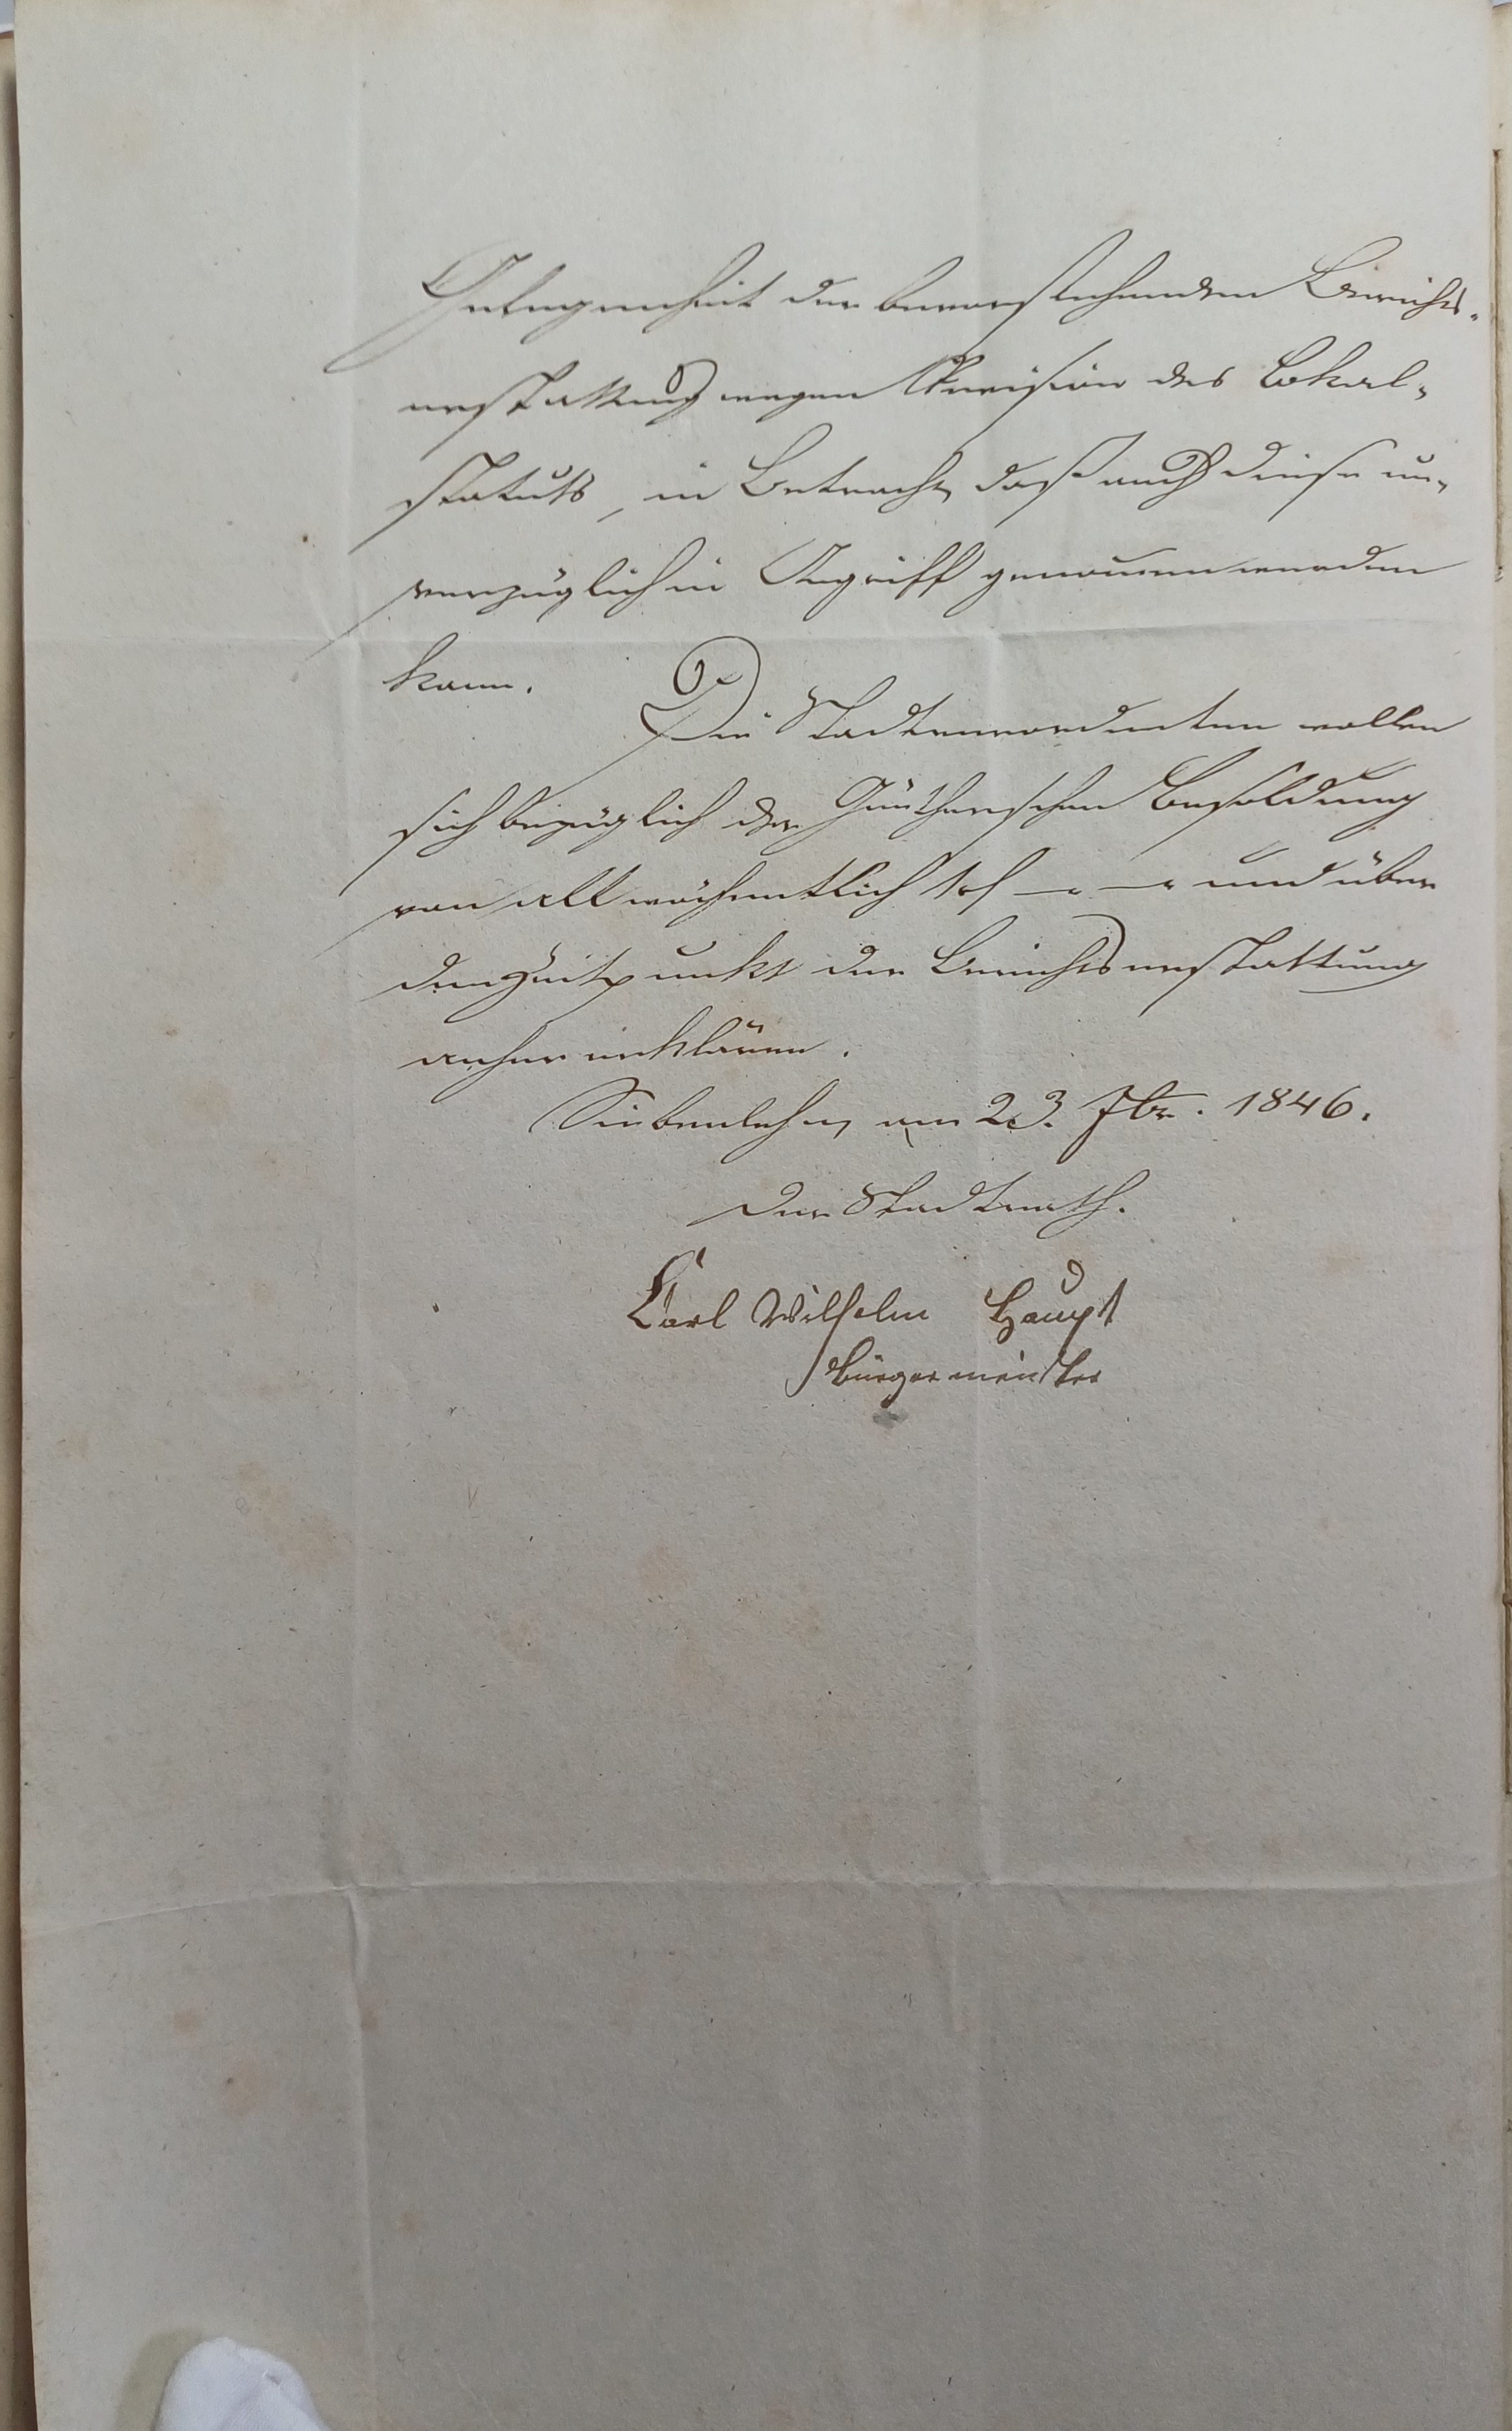 Gelegenheit der bevorstehenden Berichts-
erstattung wegen Revision des Lokal-
statuts, in Betracht, daß auch diese un-
verzüglich in Angriff genommen werden
kann.
Die Stadtverordneten wollen
sich bezüglich der Güntherschen Besoldung
von allwöchentlich 1 rl — „ — „ und über
den Zeitpunkt der Berichtserstattung
anher erklären.
Siebenlehn, am 23. 7br. 1846.
Der Stadtrath.
Carl Wilhelm Haupt
Bürgermeister